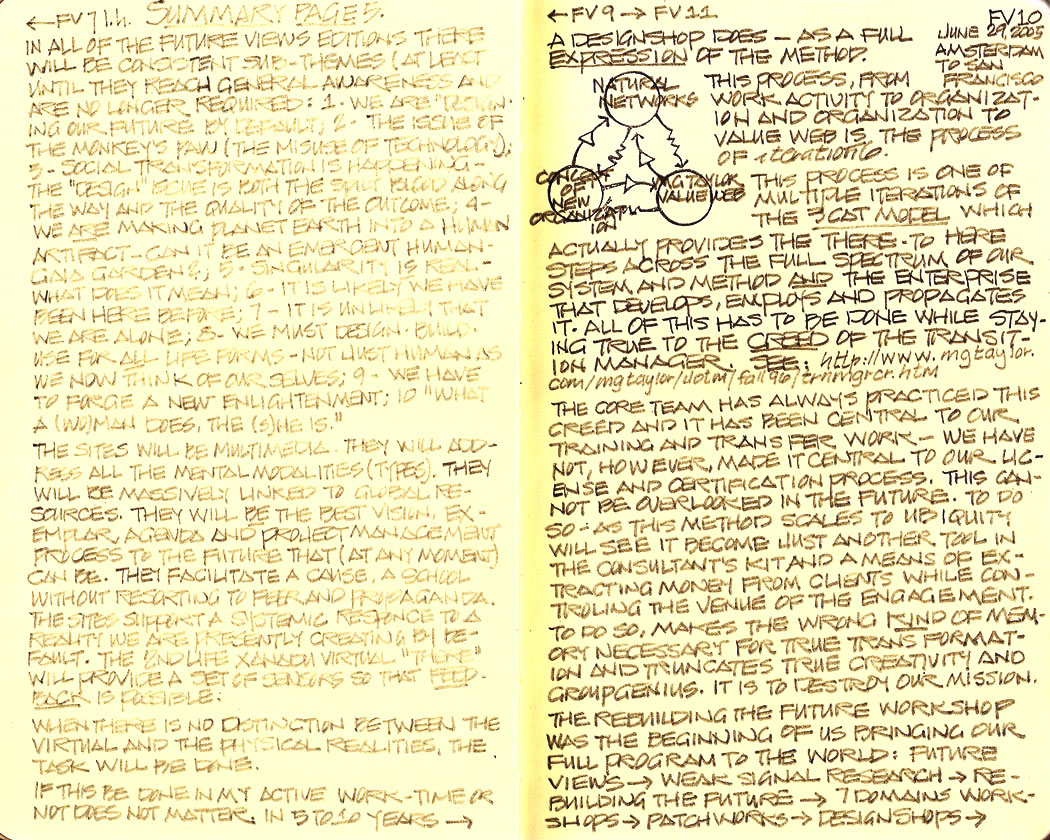 ← FV 7 1.h. SUMMARY PAGE 5.
IN ALL OF THE FUTURE VIEWS EDITIONS THERE
WILL BE CONSISTENT SUB-THEMES (AT LEAST
UNTIL THEY REACH GENERAL AWARENESS AND
ARE NO LONGER REQUIRED: 1 - WE ARE "DESIGN-
ING OUR FUTURE BY DEFAULT; 2 - THE ISSUE OF
THE MONKEY'S PAW (THE MISUSE OF TECHNOLOGY);
3 - SOCIAL TRANSFORMATION IS HAPPENING -
THE "DESIGN" ISSUE IS BOTH THE SPILT BLOOD ALONG
THE WAY AND THE QUALITY OF THE OUTCOME; 4 -
WE ARE MAKING PLANET EARTH INTO A HUMAN
ARTIFACT - CAN IT BE AN EMERGENT HUMAN-
GAIA GARDEN?; 5 - SINGULARITY IS REAL -
WHAT DOES IT MEAN; 6 - IT IS LIKELY WE HAVE
BEEN HERE BEFORE; 7 - IT IS UNLIKELY THAT
WE ARE ALONE; 8 - WE MUST DESIGN - BUILD -
USE FOR ALL LIFE FORMS - NOT JUST HUMAN AS
WE NOW THINK OF OURSELVES; 9 - WE HAVE
TO FORGE A NEW ENLIGHTENMENT; 10 "WHAT
A (WO)MAN DOES, THE (S)HE IS."
THE SITES WILL BE MULTIMEDIA. THEY WILL ADD-
RESS ALL THE MENTAL MODALITIES (TYPES). THEY
WILL BE MASSIVELY LINKED TO GLOBAL RE-
SOURCES. THEY WILL BE THE BEST VISION, EX-
EMPLAR, AGENDA AND PROJECT MANAGEMENT
PROCESS TO THE FUTURE THAT (AT ANY MOMENT)
CAN BE. THEY FACILITATE A CAUSE, A SCHOOL
WITHOUT RESORTING TO FEER AND PROPAGANDA.
THE SITES SUPPORT A SYSTEMIC RESPONCE TO A
REALITY WE ARE PRESENTLY CREATING BY DE-
FAULT. THE 2ND LIFE XANADU VIRTUAL "THERE"
WILL PROVIDE A SET OF SENSORS SO THAT FEED-
BACK IS POSSIBLE.
WHEN THERE IS NO DISTINCTION BETWEEN THE
VIRTUAL AND THE PHYSICAL REALITIES, THE
TASK WILL BE DONE.
IF THIS BE DONE IN MY ACTIVE WORK-TIME OR
NOT DOES NOT MATTER. IN 5 TO 10 YEARS →
← FV 9 → FV 11
FV10
JUNE 29, 2005
AMSTERDAM
TO SAN
FRANCISCO
A DESIGNSHOP DOES - AS A FULL
EXPRESSION OF THE METHOD.
NATURAL
NETWORKS
CONCEPT
OF
NEW
ORGANIZAT-
ION
MG TAYLOR
VALUE WEB
THIS PROCESS, FROM
WORK ACTIVITY TO ORGANIZAT-
ION AND ORGANIZATION TO
VALUE WEB IS THE PROCESS
OF iteration6.
THIS PROCESS IS ONE OF
MULTIPLE ITERATIONS OF
THE 3 CAT MODEL WHICH
ACTUALLY PROVIDES THE THERE-TO HERE
STEPS ACROSS THE FULL SPECTRUM OF OUR
SYSTEM AND METHOD AND THE ENTERPRISE
THAT DEVELOPS, EMPLOYS AND PROPAGATES
IT. ALL OF THIS HAS TO BE DONE WHILE STAY-
ING TRUE TO THE CREED OF THE TRANSIT-
ION MANAGER. SEE: http://www.mgtaylor.
com/mgtaylor/jotm/fall96/trnmgrcr.htm
THE CORE TEAM HAS ALWAYS PRACTICED THIS
CREED AND IT HAS BEEN CENTRAL TO OUR
TRAINING AND TRANSFER WORK - WE HAVE
NOT, HOWEVER, MADE IT CENTRAL TO OUR LIC-
ENSE AND CERTIFICATION PROCESS. THIS CAN-
NOT BE OVERLOOKED IN THE FUTURE. TO DO
SO - AS THIS METHOD SCALES TO UBIQUITY
WILL SEE IT BECOME JUST ANOTHER TOOL IN
THE CONSULTANT'S KIT AND A MEANS OF EX-
TRACTING MONEY FROM CLIENTS WHILE CON-
TROLING THE VENUE OF THE ENGAGEMENT.
TO DO SO, MAKES THE WRONG KIND OF MEM-
ORY NECESSARY FOR TRUE TRANSFORMAT-
ION AND TRUNCATES TRUE CREATIVITY AND
GROUPGENIUS. IT IS TO DESTROY OUR MISSION.
THE REBUILDING THE FUTURE WORKSHOP
WAS THE BEGINNING OF US BRINGING OUR
FULL PROGRAM TO THE WORLD: FUTURE
VIEWS → WEAK SIGNAL RESEARCH → RE-
BUILDING THE FUTURE → 7 DOMAINS WORK-
SHOPS → PATCHWORKS → DESIGNSHOPS →